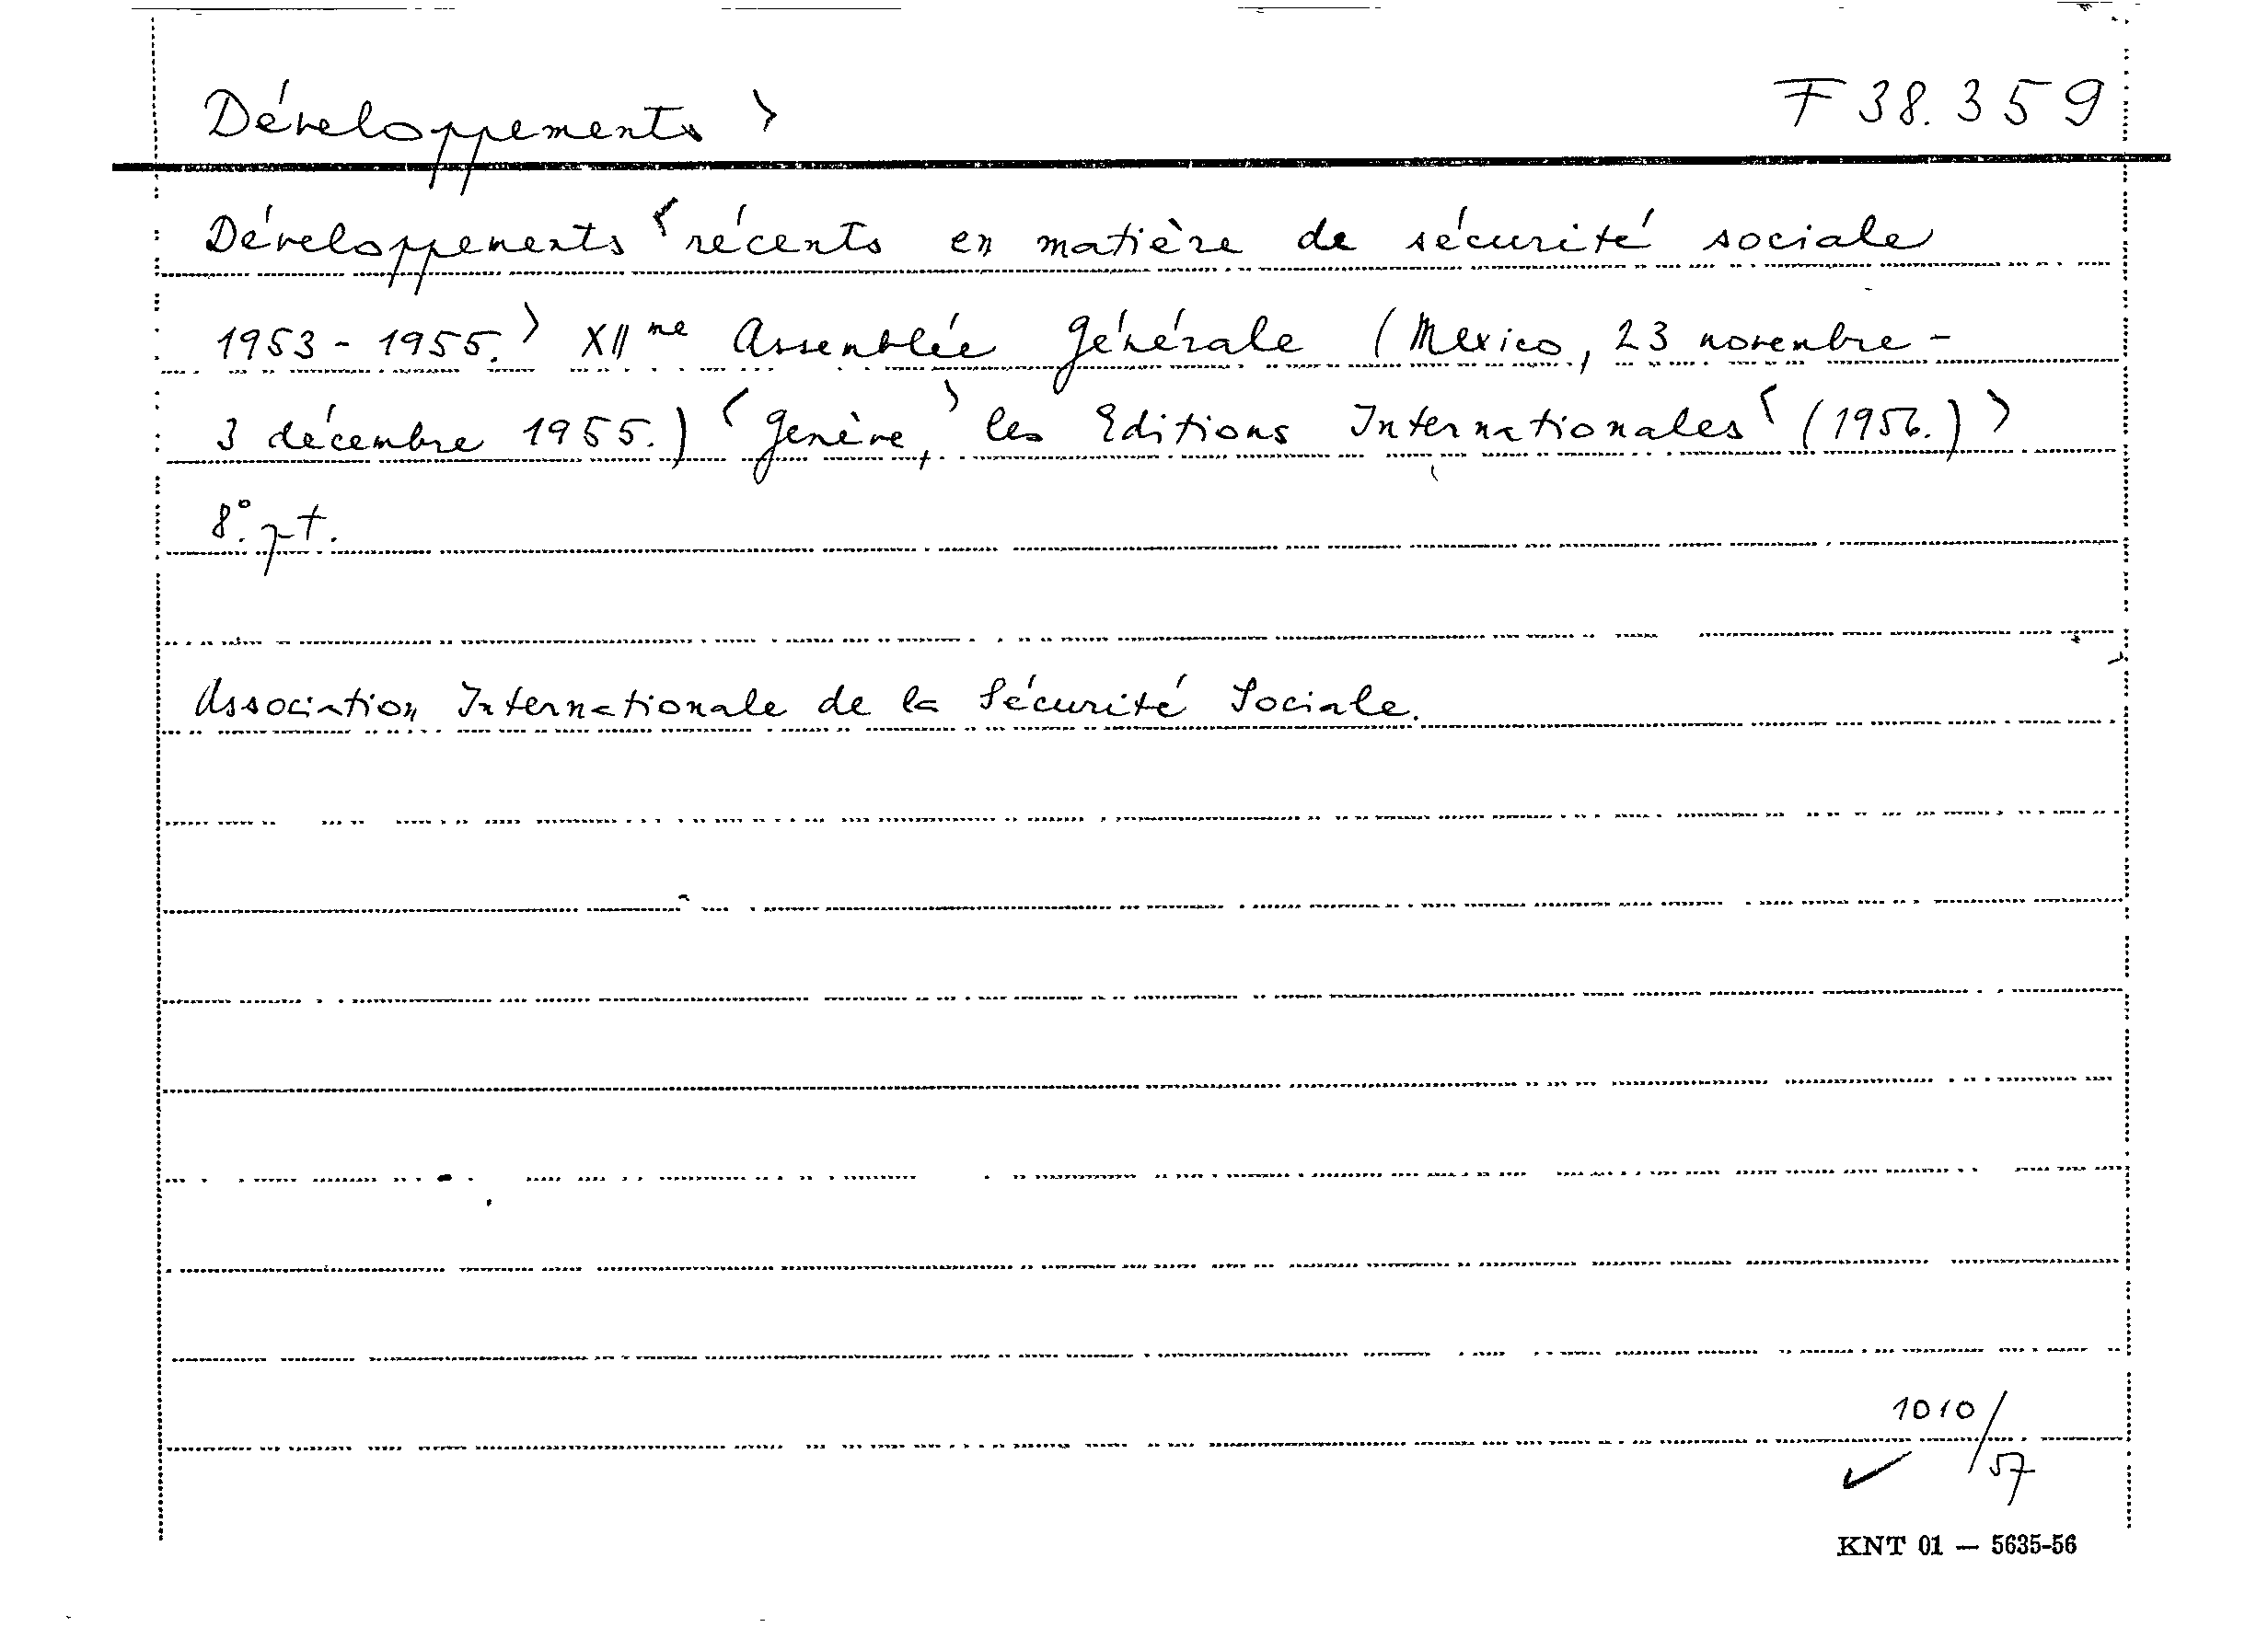 Développements > F 38.359
Développements < récents en matière de sécurité sociale
1953 - 1955. > XIIme Assemblée Générale (Mexico, 23 novembre -
3 décembre 1955.) < Genève, > les Editions Internationales < (1956.) >
8° pt.
Association Internationale de la Sécurité Sociale.
1010/57
KNT 01 — 5635-56